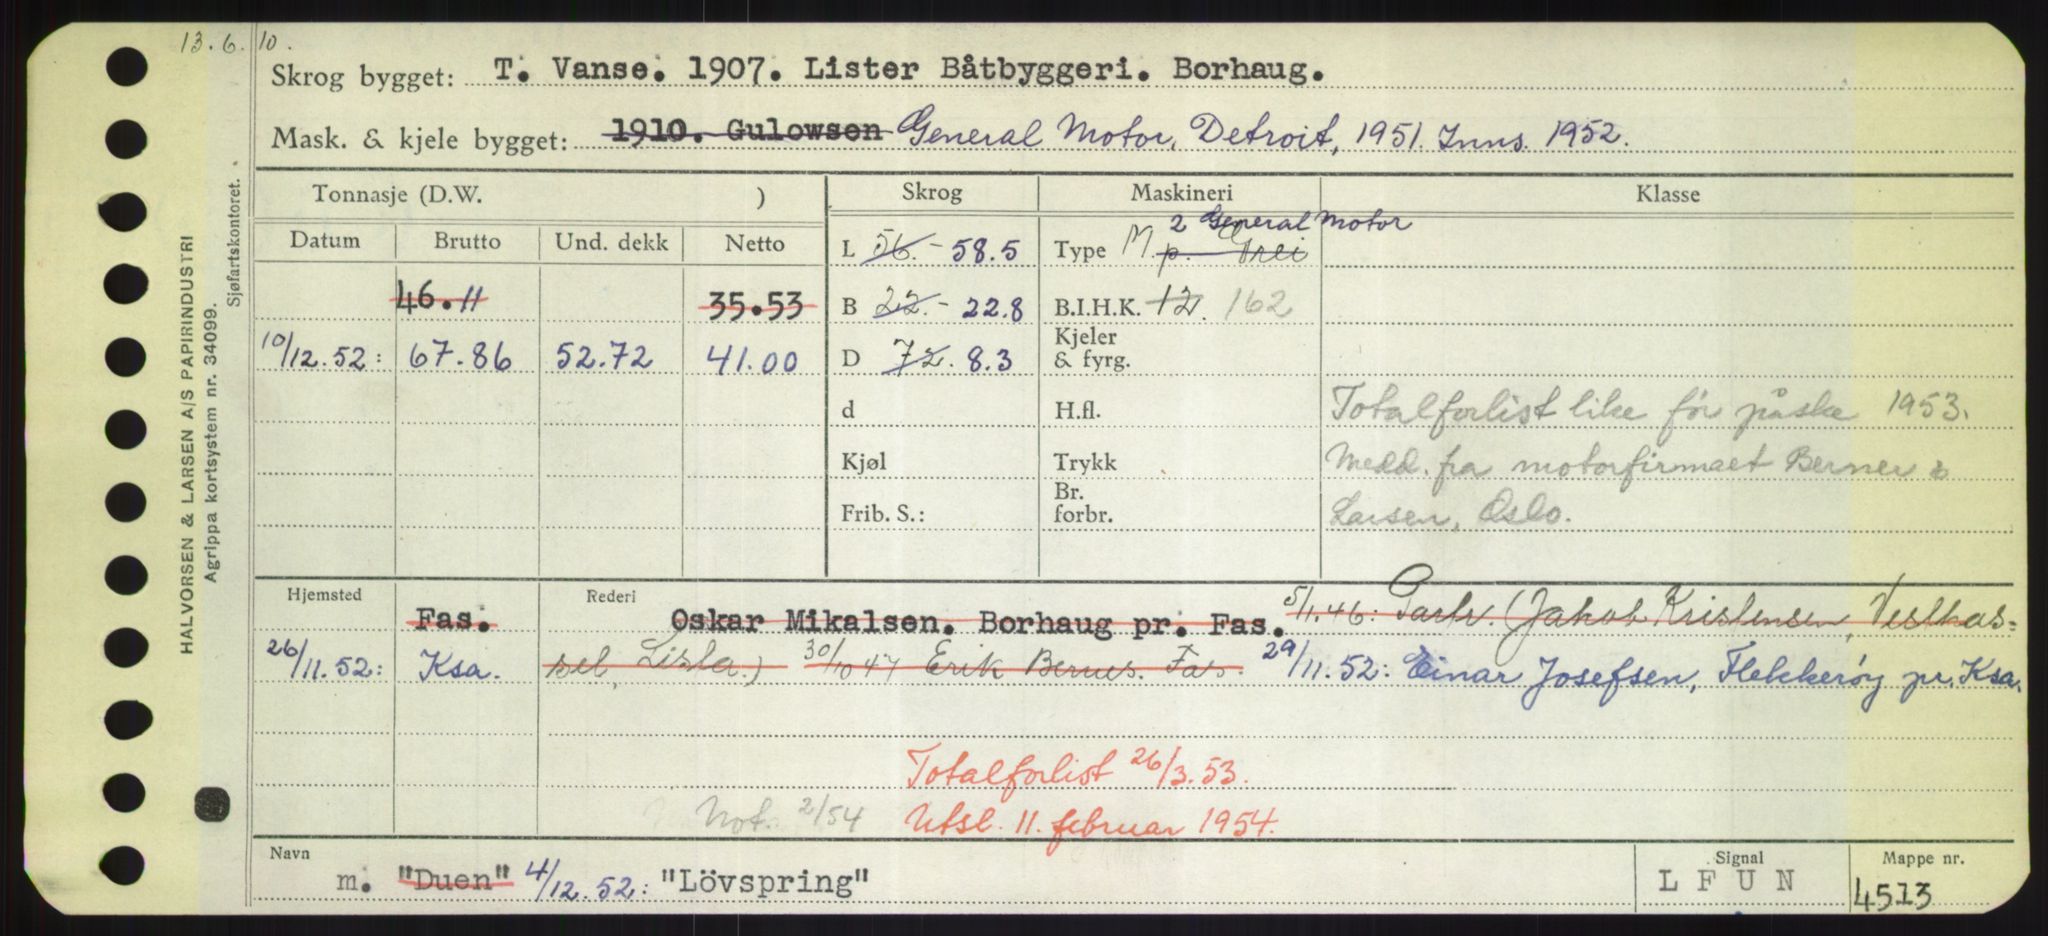 13.6.10.
Skrog bygget: T. Vanse. 1907. Lister Båtbyggeri. Borhaug.
Mask. & kjele bygget: 1910. Gulowsen General Motor, Detroit, 1951. Inns. 1952.
Tonnasje (D.W. ) Skrog Maskineri Klasse
Datum Brutto Und. dekk Netto
2 General Motor
L 56.- 58.5 Type M. p. Grei
46.11 35.53 B 22.- 22.8 B.I.H.K. 12. 162
10/12.52: 67.86 52.72 41.00 D 7.2. 8.3 Kjeler & fyrg.
d H.fl. Totalforlist like før påske 1953.
Kjøl Trykk Medd. fra motorfirmaet Berner &
Frib. S.: Br. forbr. Larsen, Oslo.
Hjemsted Fas. Rederi Oskar Mikalsen. Borhaug pr. Fas. 5/1.46: Partr. (Jakob Kristensen, Vesthas-
26/11.52: Ksa. sel, Lista.) 30/10 47 Erik Bernes. Fas. 29/11.52: Einar Josefsen, Flekkerøy pr. Ksa.
Totalforlist 26/3.53.
Not. 2/54 Utsl. 11. februar 1954.
Navn Signal Mappe nr.
m. "Duen" 4/12.52: "Lövspring" L F U N 4513
HALVORSEN & LARSEN A/S PAPIRINDUSTRI
Agrippa kortsystem nr. 34099.
Sjøfartskontoret.